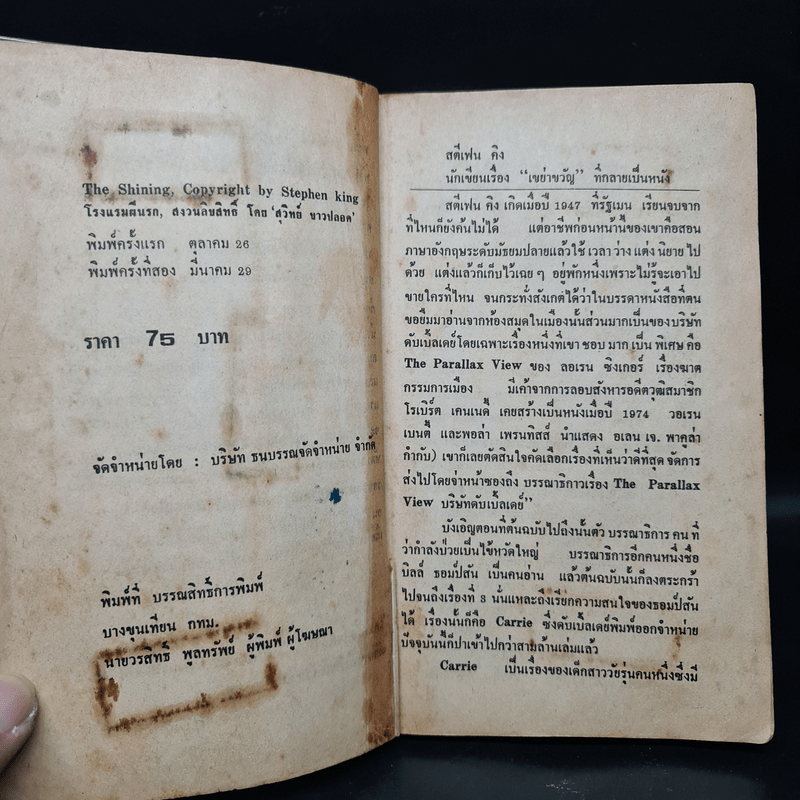 The Shining, Copyright by Stephen king
โรงแรมผีนรก, สงวนลิขสิทธิ์ โดย 'สุวิทย์ ขาวปลอด'
พิมพ์ครั้งแรก ตุลาคม 26
พิมพ์ครั้งที่สอง มีนาคม 29
ราคา 75 บาท
จัดจำหน่ายโดย : บริษัท ธนบรรณจัดจำหน่าย จำกัด
พิมพ์ที่ บรรณสิทธิ์การพิมพ์
บางขุนเทียน กทม.
นายวรสิทธิ์ พูลทรัพย์ ผู้พิมพ์ ผู้โฆษณา
สตีเฟน คิง
นักเขียนเรื่อง “เขย่าขวัญ” ที่กลายเป็นหนัง
สตีเฟน คิง เกิดเมื่อปี 1947 ที่รัฐเมน เรียนจบจาก
ที่ไหนก็ยังค้นไม่ได้ แต่อาชีพก่อนหน้านี้ของเขาคือสอน
ภาษาอังกฤษระดับมัธยมปลายแล้วใช้ เวลา ว่าง แต่ง นิยาย ไป
ด้วย แต่งแล้วก็เก็บไว้เฉย ๆ อยู่พักหนึ่งเพราะไม่รู้จะเอาไป
ขายใครที่ไหน จนกระทั่งสังเกตได้ว่าในบรรดาหนังสือที่ตน
ขอยืมมาอ่านจากห้องสมุดในเมืองนั้นส่วนมากเป็นของบริษัท
ดับเบิ้ลเดย์โดยเฉพาะเรื่องหนึ่งที่เขา ชอบ มาก เป็น พิเศษ คือ
The Parallax View ของ ลอเรน ซิงเกอร์ เรื่องฆาต
กรรมการเมือง มีเค้าจากการลอบสังหารอดีตวุฒิสมาชิก
โรเบิร์ต เคนเนดี้ เคยสร้างเป็นหนังเมื่อปี 1974 วอเรน
เบนตี้ และพอล่า เพรนทิสส์ นำแสดง อเลน เจ. พาคูล่า
กำกับ) เขาก็เลยตัดสินใจคัดเลือกเรื่องที่เห็นว่าดีที่สุด จัดการ
ส่งไปโดยจ่าหน้าซองถึง บรรณาธิกาวเรื่อง The Parallax
View บริษัทดับเบิ้ลเดย์”
บังเอิญตอนที่ต้นฉบับไปถึงนั้นตัว บรรณาธิการ คน ที่
ว่ากำลังป่วยเป็นไข้หวัดใหญ่ บรรณาธิการอีกคนหนึ่งชื่อ
บิลล์ ธอมป์สัน เป็นคนอ่าน แล้วต้นฉบับนั้นก็ลงตระกร้า
ไปจนถึงเรื่องที่ 3 นั่นแหละถึงเรียกความสนใจของธอมป์สัน
ได้ เรื่องนั้นก็คือ Carrie ซึ่งดับเบิ้ลเดย์พิมพ์ออกจำหน่าย
ปัจจุบันนี้ก็ปาเข้าไปกว่าสามล้านเล่มแล้ว
Carrie เป็นเรื่องของเด็กสาววัยรุ่นคนหนึ่งซึ่งมี